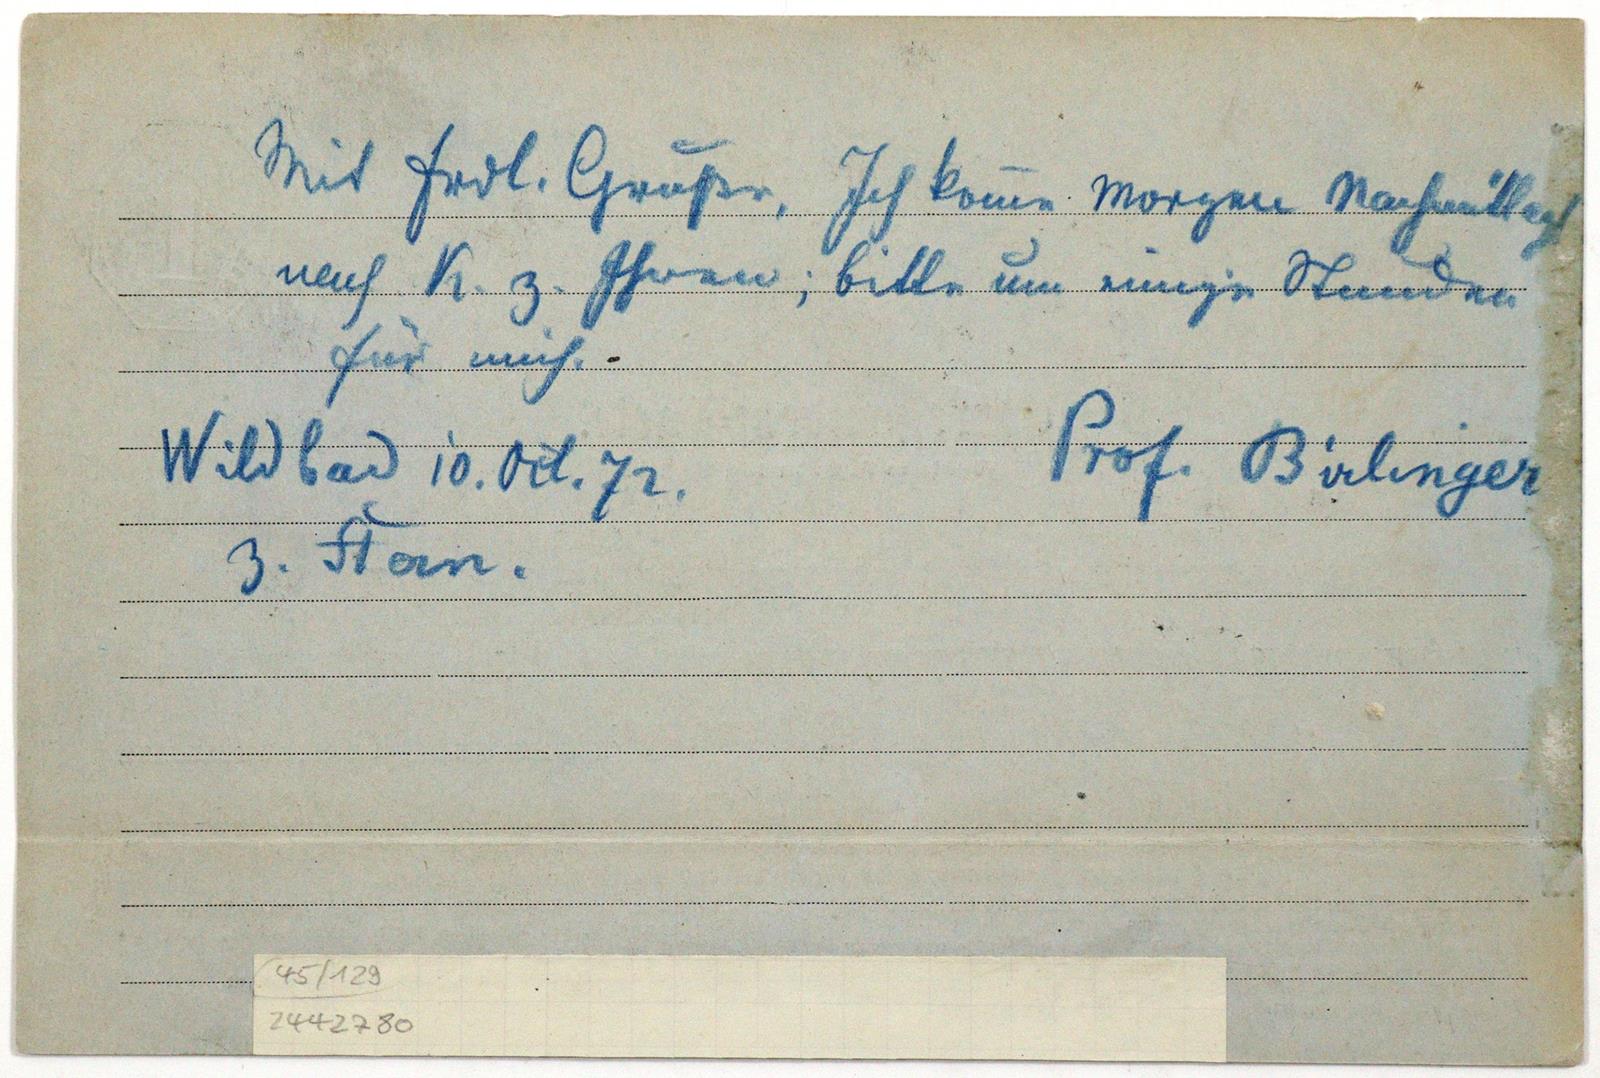 Mit frdl. Gruße, Ich kom̄e morgen Nachmittag
nach K. z. Ihnen; bitte um einige Stunden
für mich.
Wildbad 10. Oct. 72.
Prof. Birlinger
z.
45/129
2442780